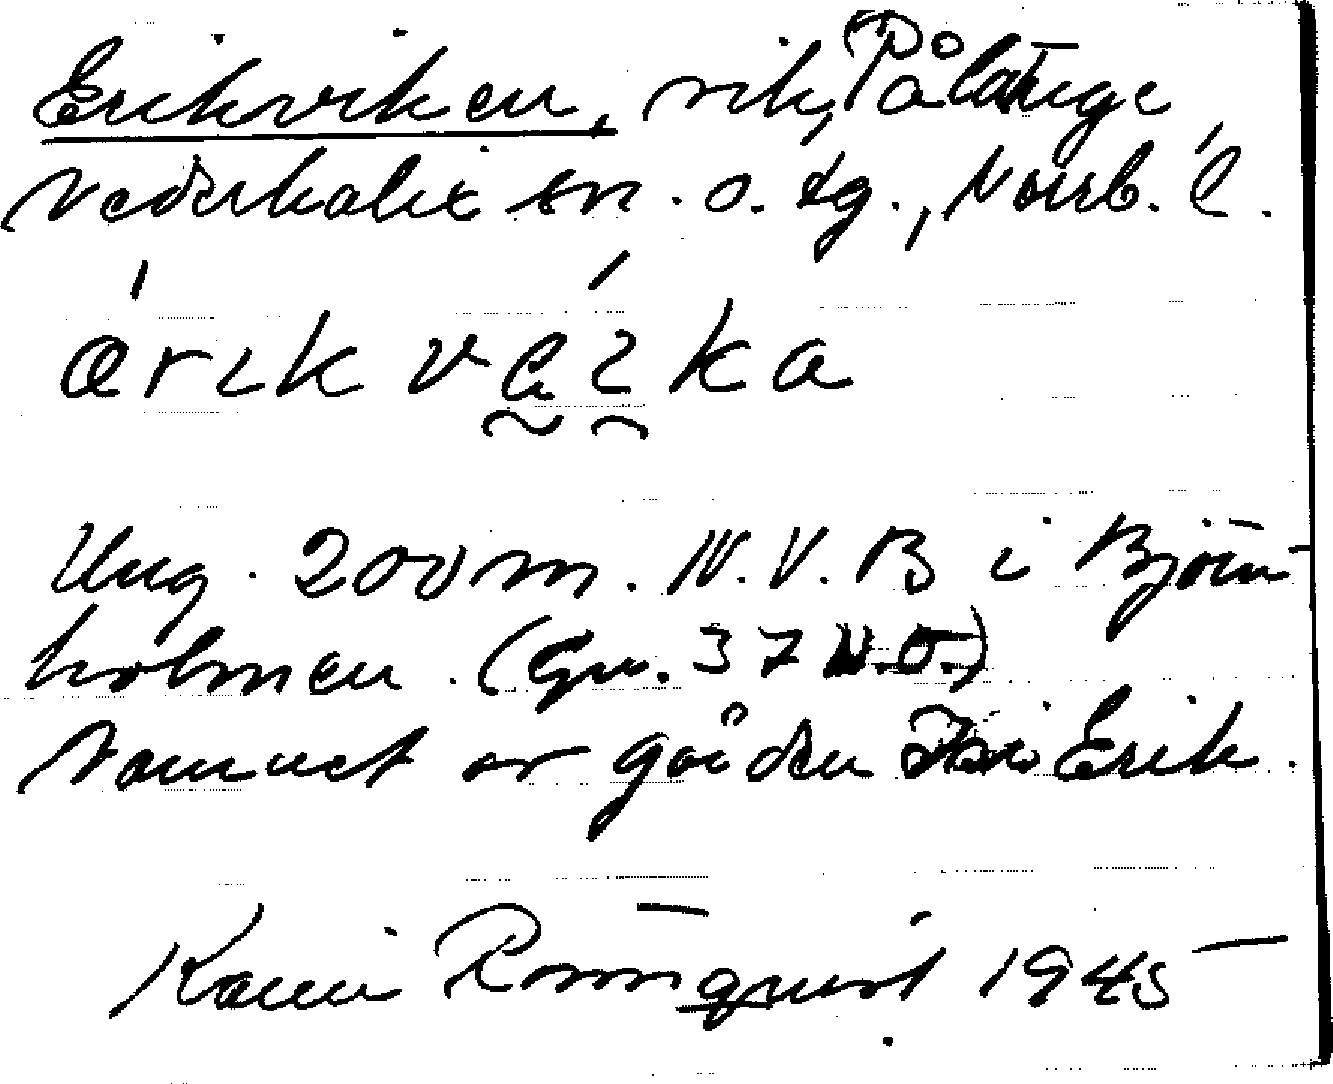 Erikviken, vik, Pålänge
Nederkalix sn. o. tg., Norrb. l.
ärɩk vɑ̈ɩka
Ung. 200 m. N.V. B i Björn-
holmen. (Gu. 37 N.O.)
Namnet er gården Erik.
Karin Rönnquist 1945